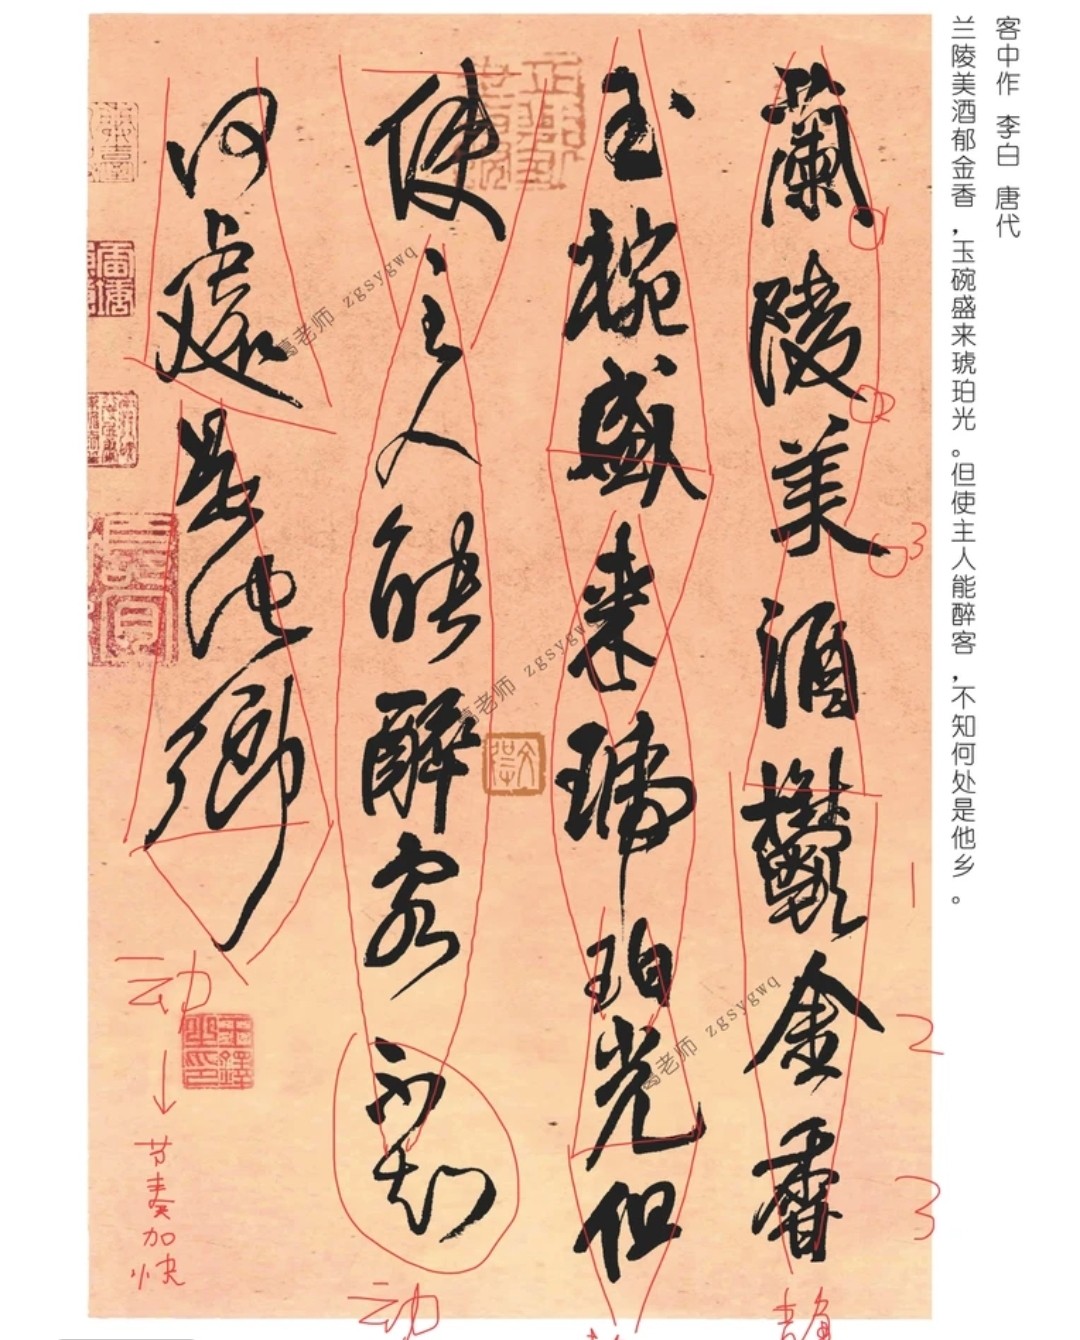 客中作 李白 唐代
兰陵美酒郁金香，玉碗盛来琥珀光。但使主人能醉客，不知何处是他乡。
蘭陵美酒鬱金香
玉椀盛来琥珀光但
使主人能醉客不知
何處是他鄉
葛老师 zgsygwq
葛老师 zgsygwq
葛老师 zgsygwq
1
2
3
1
2
3
动
节奏加快
动
静